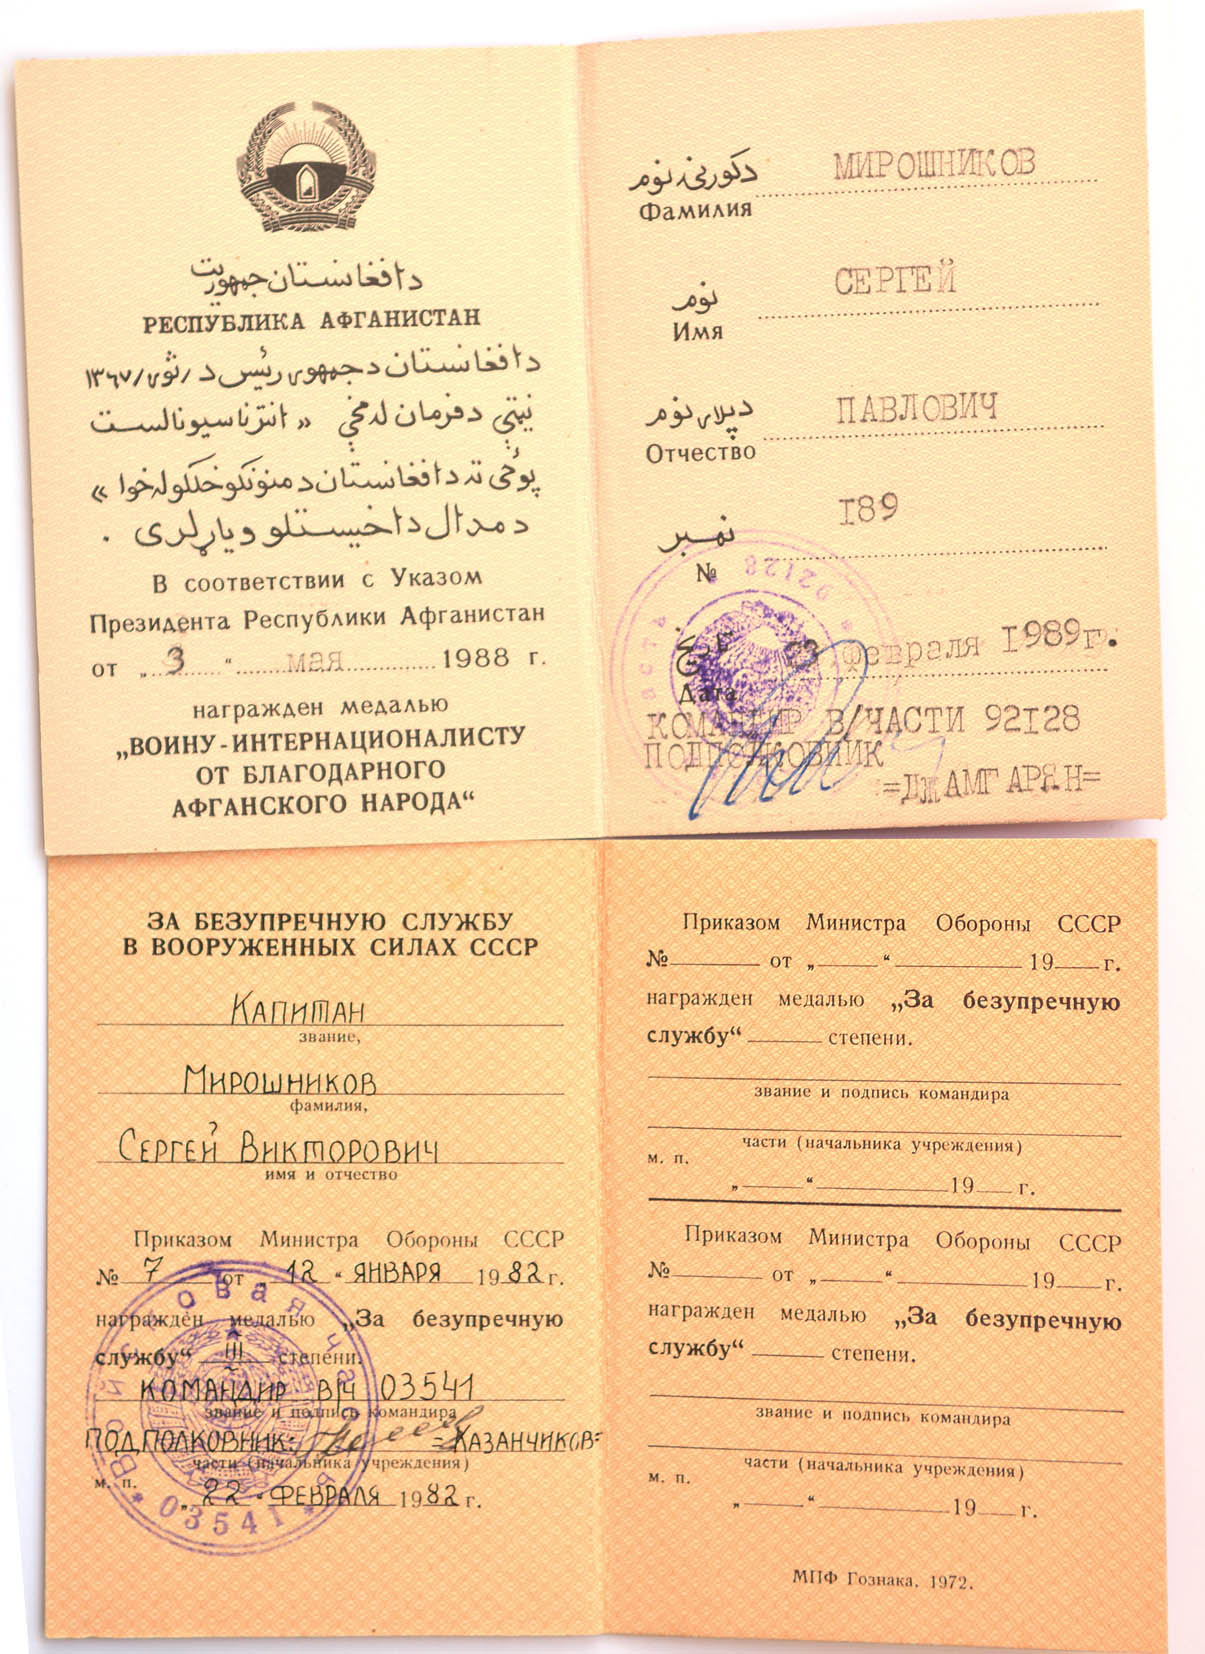 دافغانستان جمهوریت
РЕСПУБЛИКА АФГАНИСТАН
دافغانستان دجمهور رئیس د /ثور/ ۱۳۶۷
نیټې دفرمان له مخې « انترناسیونالست
پوځی ته دافغانستان د منونکو خلکو له خوا »
د مدال داخیستلو ویاړ لری .
В соответствии с Указом
Президента Республики Афганистан
от „ 3 “ мая 1988 г.
награжден медалью
„ВОИНУ-ИНТЕРНАЦИОНАЛИСТУ
ОТ БЛАГОДАРНОГО
АФГАНСКОГО НАРОДА“
دکورنۍ نوم МИРОШНИКОВ
Фамилия
نوم СЕРГЕЙ
Имя
دپلار نوم ПАВЛОВИЧ
Отчество
نمبر I89
№
92128
3 февраля I989г.
Дата
КОМАНДИР В/ЧАСТИ 92I28
ПОДПОЛКОВНИК
=ДЖАМГАРЯН=
ЗА БЕЗУПРЕЧНУЮ СЛУЖБУ
В ВООРУЖЕННЫХ СИЛАХ СССР
КАПИТАН
звание,
МИРОШНИКОВ
фамилия,
СЕРГЕЙ ВИКТОРОВИЧ
имя и отчество
Приказом Министра Обороны СССР
№ 7 от „ 12 “ ЯНВАРЯ 1982 г.
награждён медалью „За безупречную
службу“ III степени.
КОМАНДИР В/Ч 03541
звание и подпись командира
ПОДПОЛКОВНИК: =КАЗАНЧИКОВ=
части (начальника учреждения)
м. п.
„ 22 “ ФЕВРАЛЯ 1982 г.
Войсковая часть * 03541 *
Приказом Министра Обороны СССР
№ от „ “ 19 г.
награжден медалью „За безупречную
службу“ степени.
звание и подпись командира
части (начальника учреждения)
м. п.
„ “ 19 г.
Приказом Министра Обороны СССР
№ от „ “ 19 г.
награжден медалью „За безупречную
службу“ степени.
звание и подпись командира
части (начальника учреждения)
м. п.
„ “ 19 г.
МПФ Гознака. 1972.